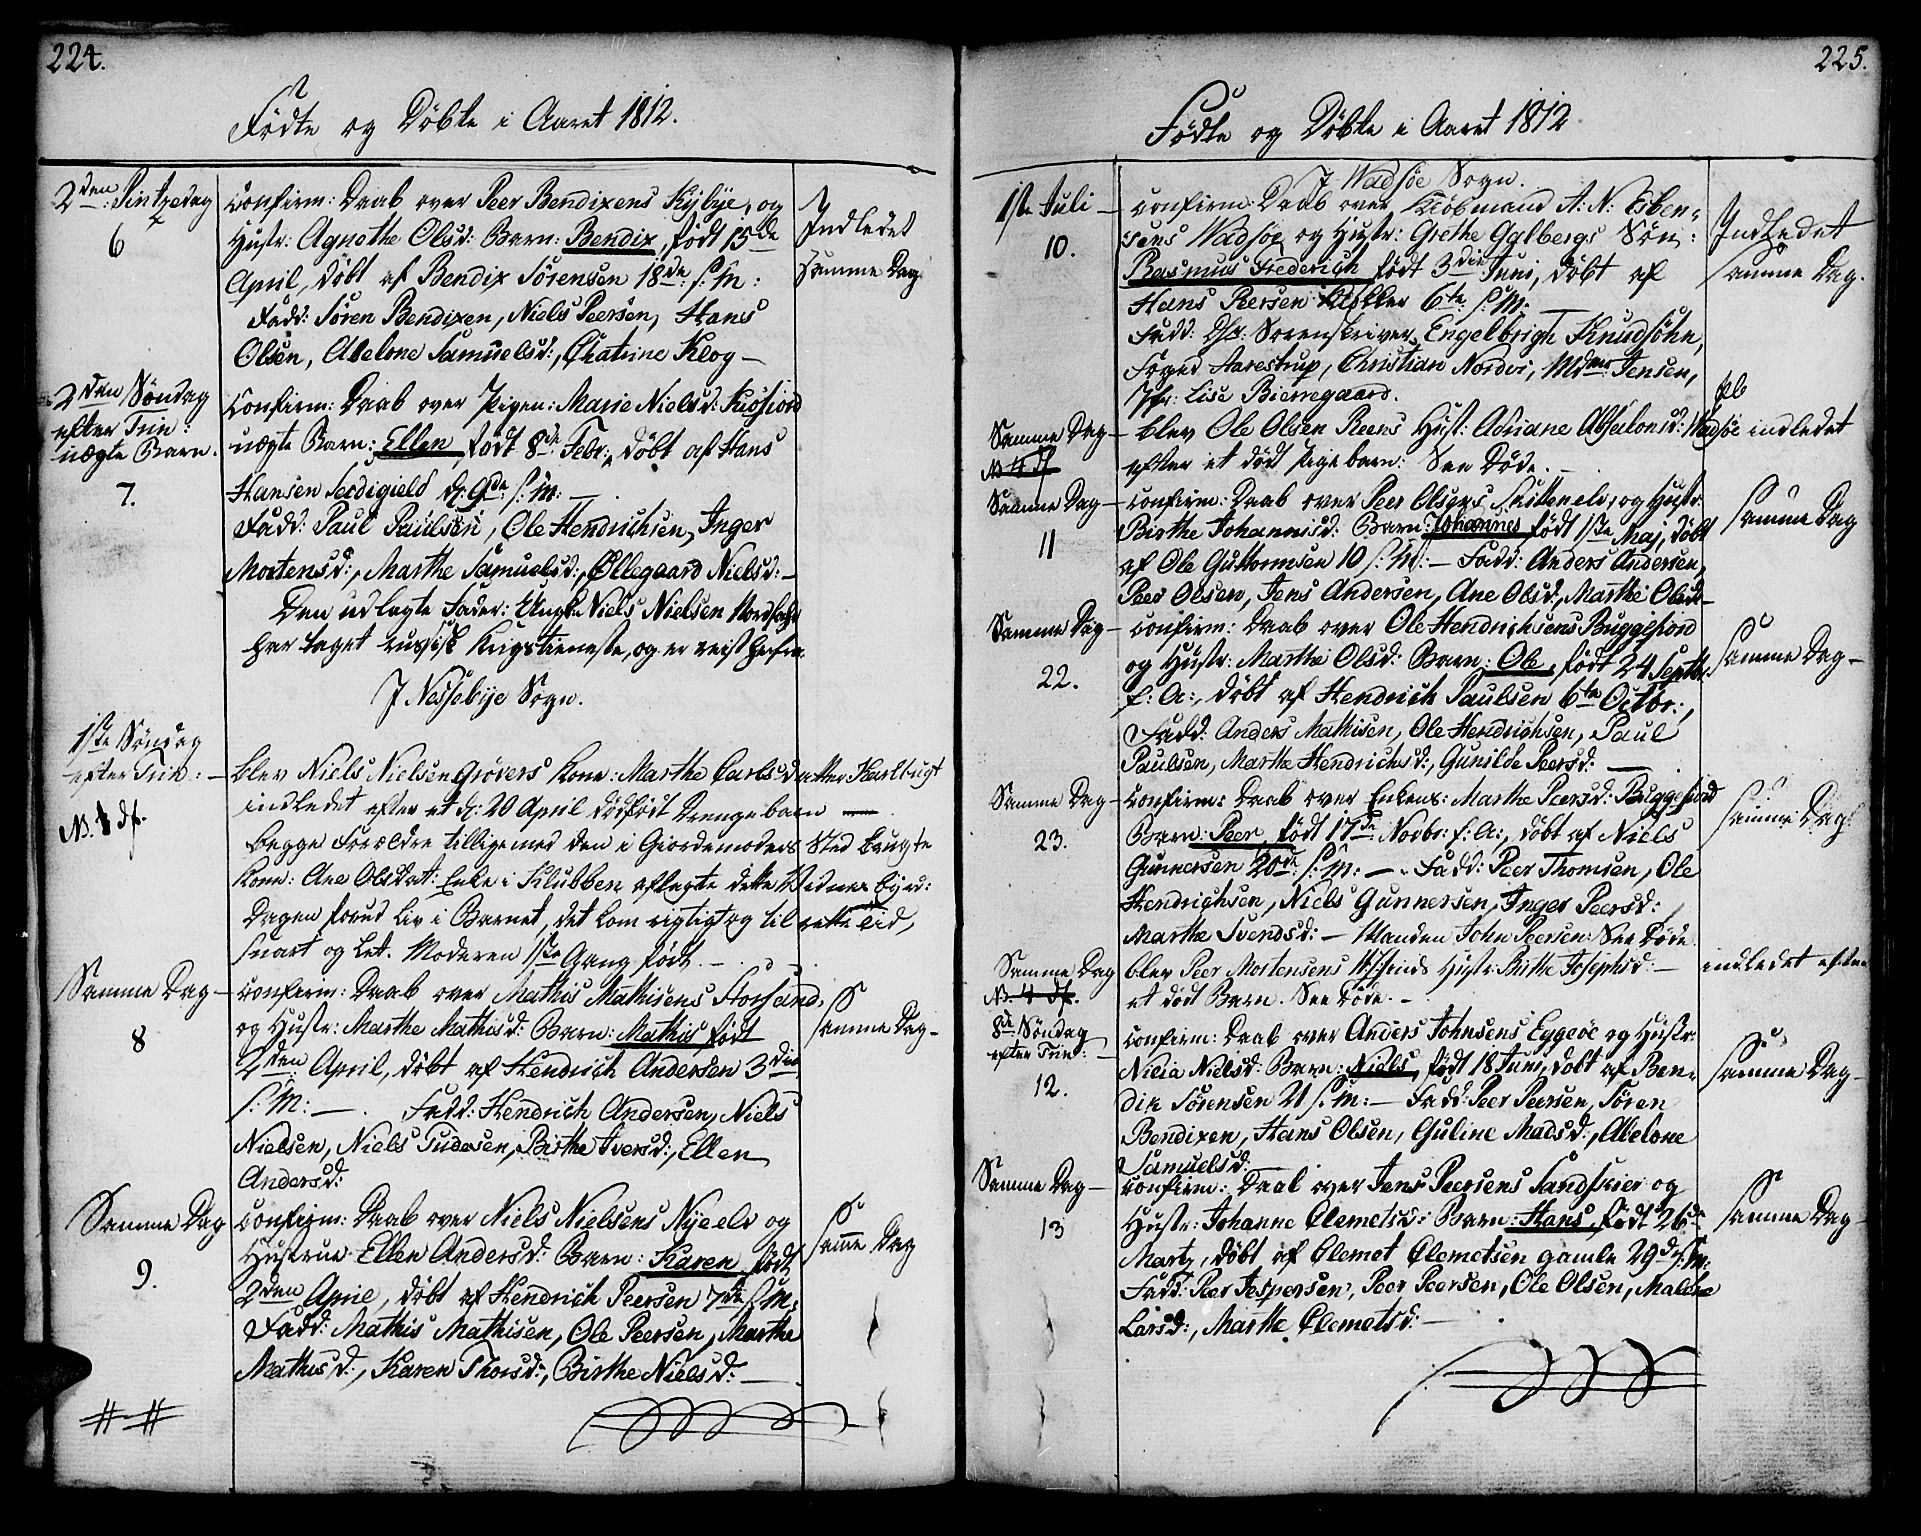 224.
Födte og Döbte i Aaret 1812.
2den Pintzedag
6
confirm: Daab over Peer Bendixens Kÿbÿe, og
Hustr: Agnethe Olsd: Barn: Bendix, födt 15de
April, döbt af Bendix Sörensen 18de s: M:
Fadd: Sören Bendixen, Niels Peersen, Hans
Olsen, Abelone Samuelsd:, Chatrine Klog –
Indledet
samme Dag
2den Söndag
efter Trin:
uægte Barn.
7.
Confirm: Daab over Pigen: Marie Nielsd:
uægte Barn: Ellen, födt 8de Febr:, döbt af Hans
Hansen d: 9de s: M: –
Fadd: Paul Paulsen, Ole Hendrichsen, Inger
Mortensd:, Marthe Samuelsd:, Ollegaard Nielsd: –
Den udlagte Fader: Ungk: Niels Nielsen
har taget russisk Krigstieneste, og er reist herfra.
I Nessebÿe Sogn.
1ste Söndag
efter Trin: –
blev Niels Nielsen Grövers Kone: Marthe Carlsdatter Karlbugt
indledet efter et d: 20 April dödfödt Drengebarn –
Begge Forældre tilligemed den i Giordemoders Sted brugte
Kone: Ane Olsdat: Enke i Klubben aflagte dette Vidnesbÿrd:
Dagen forud Liv i Barnet, det kom rigtigt og til rette Tid,
snart og let. Moderen 1ste Gang födt. –
Samme Dag –
8
confirm: Daab over Mathis Mathisens Storsand,
og Hustr: Marthe Mathisd: Barn: Mathis födt
2den April, döbt af Hendrich Andersen 3die
s: M: – . Fadd: Hendrich Andersen, Niels
Nielsen, Niels Tudesen, Birthe Iversd:, Ellen
Andersd:
Samme Dag –
Samme Dag
9.
confirm: Daab over Niels Nielsens Nÿeelv og
Hustrue Ellen Andersd: Barn: Karen, födt
2den April, döbt af Hendrich Peersen 7de s: M:
Fadd: Mathis Mathisen, Ole Peersen, Marthe
Mathisd:, Karen Thorsd:, Birthe Nielsd: –
Samme Dag
225.
Födte og Döbte i Aaret 1812
I Wadsöe Sogn.
1ste Juli –
10.
confirm: Daab over Kiöbmand A: N: Esben-
sens Wadsöe og Hustr: Grethe Galbergs Sön:
Rasmus Frederich födt 3die Juni, döbt af
Hans Peersen 6te s: M: –
Fadd: Sorenskriver Engelbrigt Knudsöhn,
Foged Aarestrup, Christian Nordvi, Mdme Jensen,
Jfr: Lise Bierregaard.
Indledet
samme Dag.
Samme Dag –
blev Ole Olsen Reens Hust: Adriane Absalonsd: Wadsöe indledet
efter et dödt Pigebarn: See Döde. –
Samme Dag –
11
confirm: Daab over Peer Olsens og Hustr:
Birthe Johannisd: Barn: Johannes födt 1ste Maj, döbt
af Ole Guttormsen 10 s: M: – Fadd: Anders Andersen,
Peer Olsen, Jens Andersen, Ane Olsd:, Marthe Olsd: –
Samme Dag
Samme Dag –
22.
confirm: Daab over Ole Hendrichsens Buggefiord
og Hustr: Marthe Olsd: Barn: Ole, födt 24 Septbr:
f: A:, döbt af Hendrich Paulsen 6te Octbr:,
Fadd: Anders Mathisen, Ole Hendrichsen, Paul
Paulsen, Marthe Hendrichsd:, Gunilde Peersd: –
Samme Dag –
Samme Dag –
23.
Confirm: Daab over Enkens: Marthe Peersd: Buggefiord
Barn: Peer, födt 17de Novbr: f: A:, döbt af Niels
Gunnersen 20de s: M: – . Fadd: Peer Thomsen, Ole
Hendrichsen, Niels Gunnersen, Inger Peersd:,
Marthe Svendsd: – Manden John Peersen: See Döde
Samme Dag
Samme Dag
blev Peer Mortensens Hustr: Birthe Josephsd: – indledet efter
et dödt Barn. See Döde. –
8de Söndag
efter Trin: –
12.
confirm: Daab over Anders Johnsens Eggeöe og Hustr:
Nicia Nielsd: Barn: Niels, födt 18 Juni, döbt af Ben-
dix Sörensen 21 s: M: – Fadd: Peer Peersen, Sören
Bendixen, Hans Olsen, Guline Madsd:, Abelone
Samuelsd:
Samme Dag –
Samme Dag –
13
confirm: Daab over Jens Peersens Sandskier og
Hustr: Johanne Clemetsd: Barn: Hans, födt 26de
Marty, döbt af Clemet Clemetsen gamle 29de s: M:
Fadd: Peer Jespersen, Peer Peersen, Ole Olsen, Malene
Larsd:, Marthe Clemetsd: –
Samme Dag –